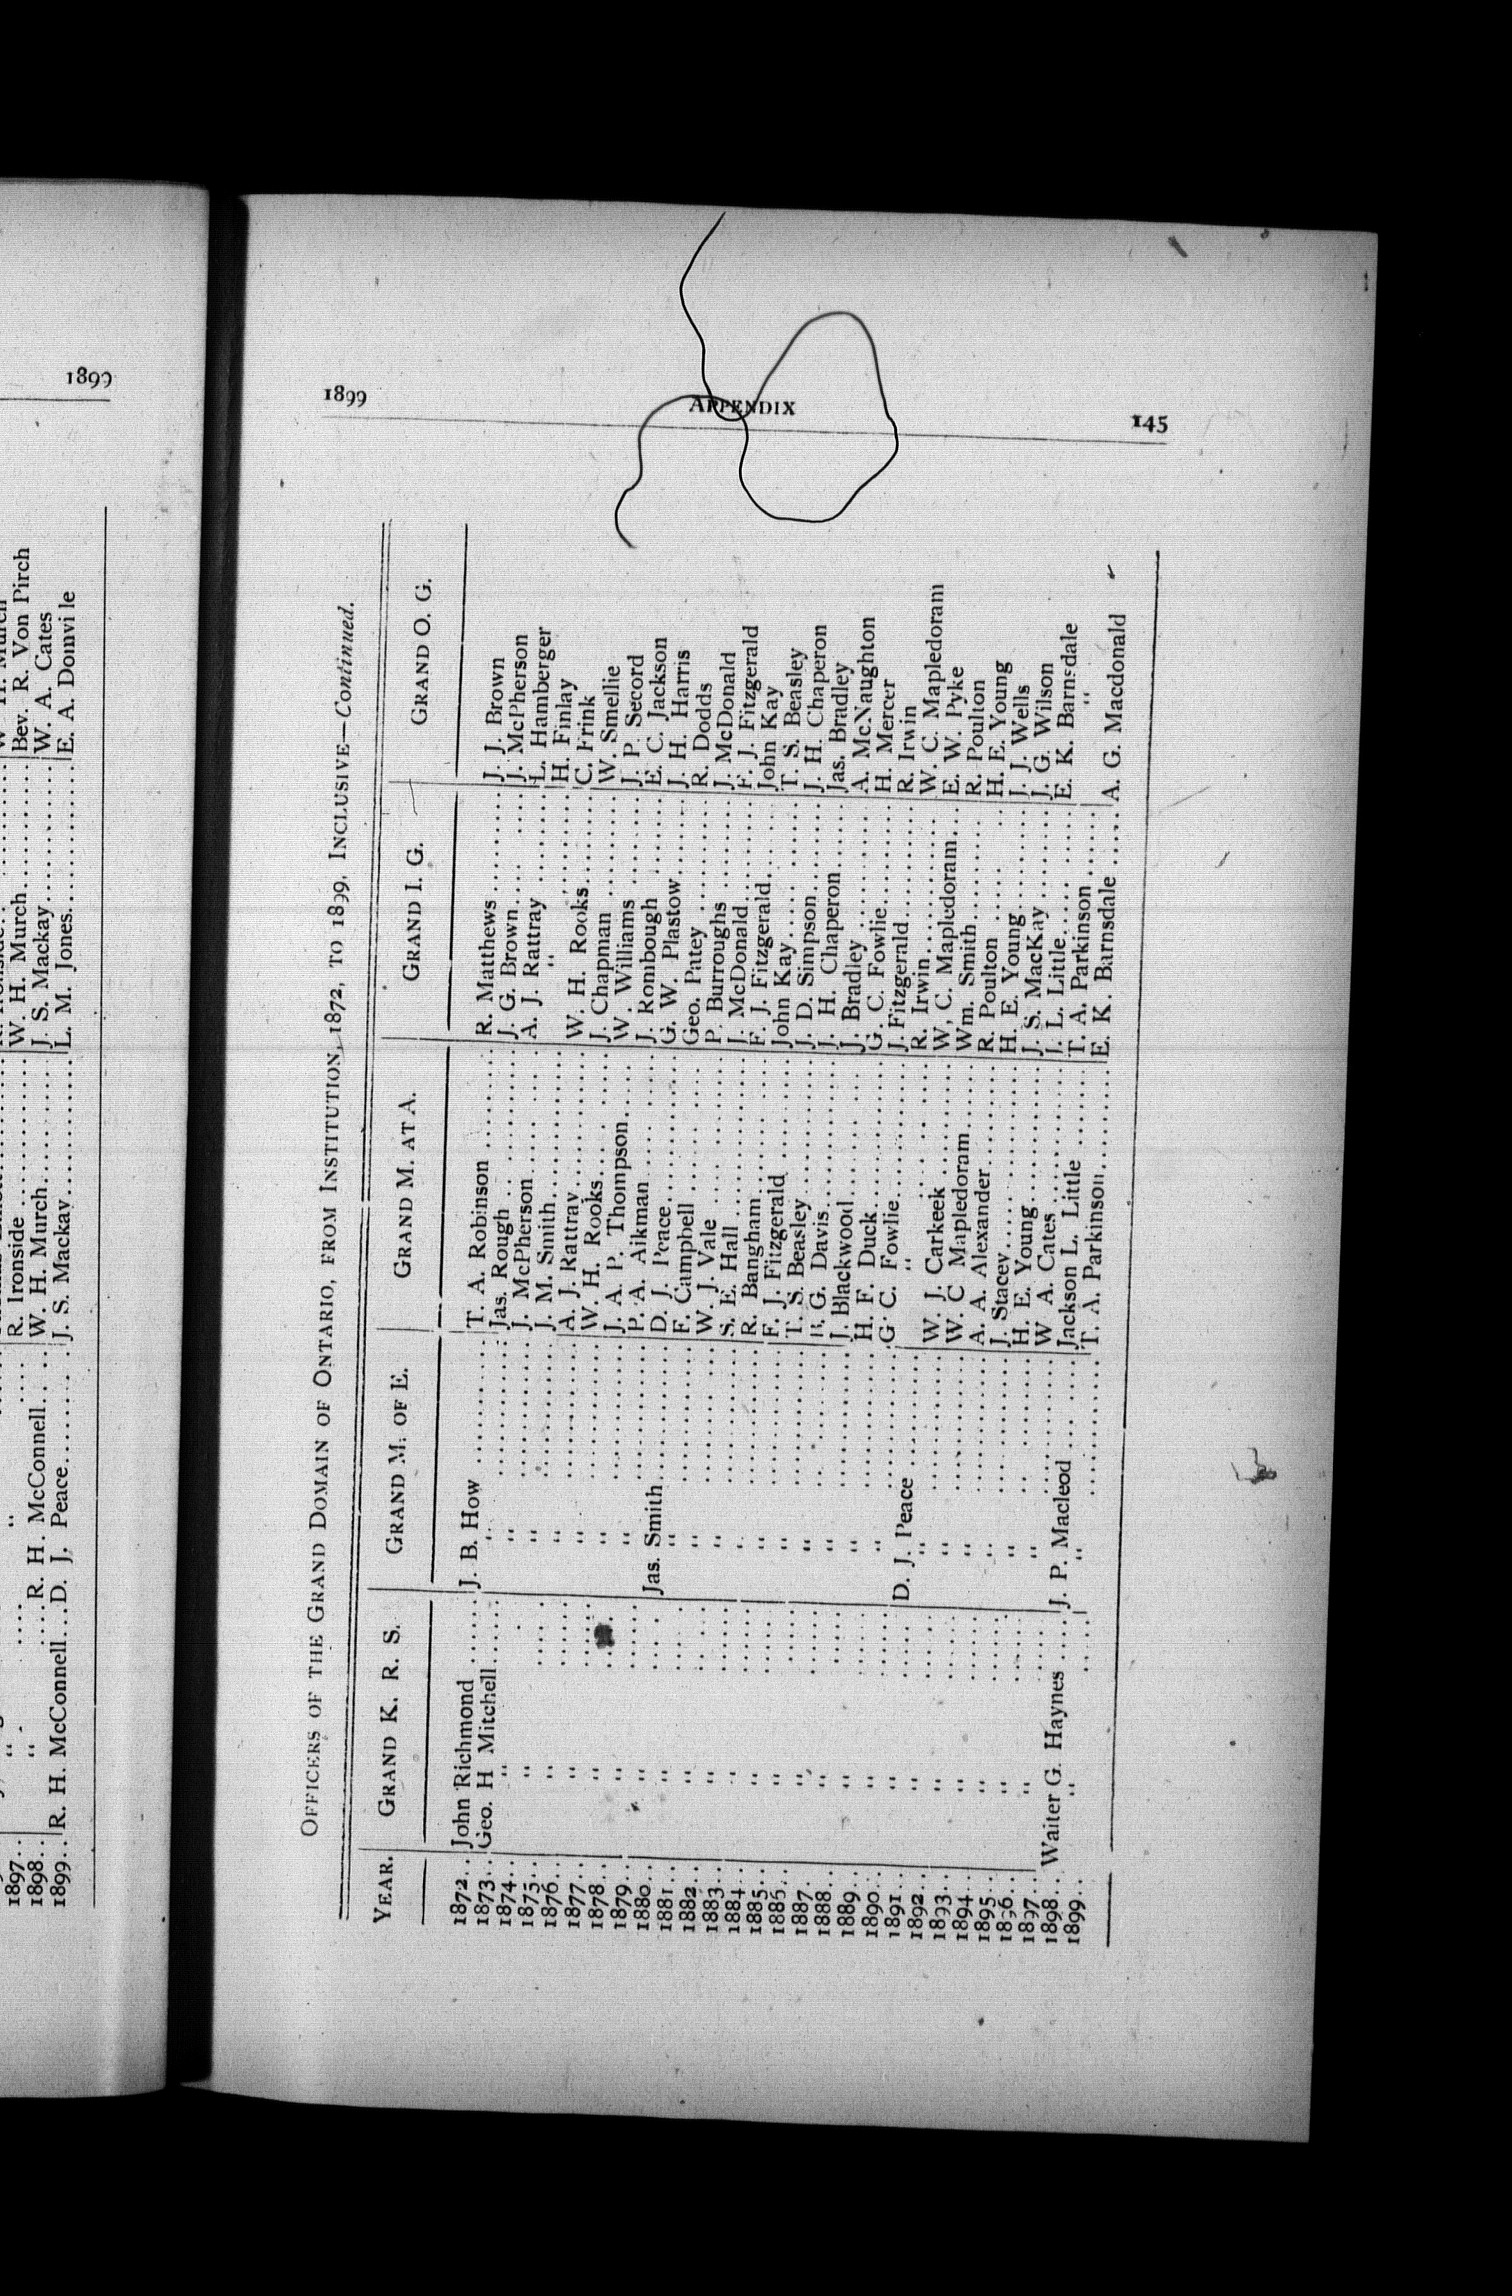 1899
W. H. Murch
Bev. R. Von Pirch
1897.. " .... " R. Ironside ........ W. H. Murch........
1898.. " ....R. H. McConnell... W. H. Murch........ J. S. Mackay........ W. A. Cates
1899.. R. H. McConnell...D. J. Peace........ J. S. Mackay........ L. M. Jones........ E. A. Domville
1899 APPENDIX 145
OFFICERS OF THE GRAND DOMAIN OF ONTARIO, FROM INSTITUTION, 1872, TO 1899, INCLUSIVE—Continued.
YEAR. GRAND K. R. S. GRAND M. OF E. GRAND M. AT A. GRAND I. G. GRAND O. G.
1872.. John Richmond ...... J. B. How ........ T. A. Robinson ........ R. Matthews ........ J. J. Brown
1873.. Geo. H Mitchell...... " ........ Jas. Rough ........ J. G. Brown........ J. McPherson
1874.. " " ........ J. McPherson........ A. J. Rattray ........ L. Hamberger
1875.. " ..... " ........ J. M. Smith........ " ........ H. Finlay
1876.. " ..... " ........ A. J. Rattray........ W. H. Rooks........ C. Frink
1877.. " ..... " ........ W. H. Rooks........ J. Chapman ........ W. Smellie
1878.. " ..... " ........ J. A. P. Thompson..... W. Williams ........ J. P. Secord
1879.. " ..... " ........ P. A. Aikman ........ J. Rombough ........ E. C. Jackson
1880.. " ..... Jas. Smith........ D. J. Peace........ G. W. Plastow........ J. H. Harris
1881.. " ..... " ........ F. Campbell ........ Geo. Patey ........ R. Dodds
1882.. " ..... " ........ W. J. Vale ........ P. Burroughs ........ J. McDonald
1883.. " ..... " ........ S. E. Hall ........ J. McDonald........ F. J. Fitzgerald
1884.. " ..... " ........ R. Bangham........ F. J. Fitzgerald........ John Kay
1885.. " ..... " ........ F. J. Fitzgerald ........ John Kay ........ T. S. Beasley
1886.. " ..... " ........ T. S. Beasley ........ J. D. Simpson........ J. H. Chaperon
1887.. " ..... " ........ B. G. Davis........ J. H. Chaperon........ Jas. Bradley
1888.. " ..... " ........ J. Blackwood........ J. Bradley ........ A. McNaughton
1889.. " ..... " ........ H. F. Duck........ G. C. Fowlie........ H. Mercer
1890.. " ..... " ........ G. C. Fowlie........ J. Fitzgerald........ R. Irwin
1891.. " ..... D. J. Peace ........ " ........ R. Irwin........ W. C. Mapledoram
1892.. " ..... " ........ W. J. Carkeek ........ W. C. Mapledoram... E. W. Pyke
1893.. " ..... " ........ W. C Mapledoram..... Wm. Smith........ R. Poulton
1894.. " ..... " ........ A. A. Alexander........ R. Poulton ........ H. E. Young
1895.. " ..... " ........ J. Stacey........ H. E. Young ........ J. J. Wells
1896.. " ..... " ........ H. E. Young........ J. S. MacKay ........ J. G. Wilson
1897.. " ..... " ........ W A. Cates ........ J. L. Little........ E. K. Barnsdale
1898.. Walter G. Haynes ..... J. P. Macleod ........ Jackson L. Little ........ T. A. Parkinson ...... "
1899.. " ..... " ........ T. A. Parkinson........ E. K. Barnsdale ..... A. G. Macdonald